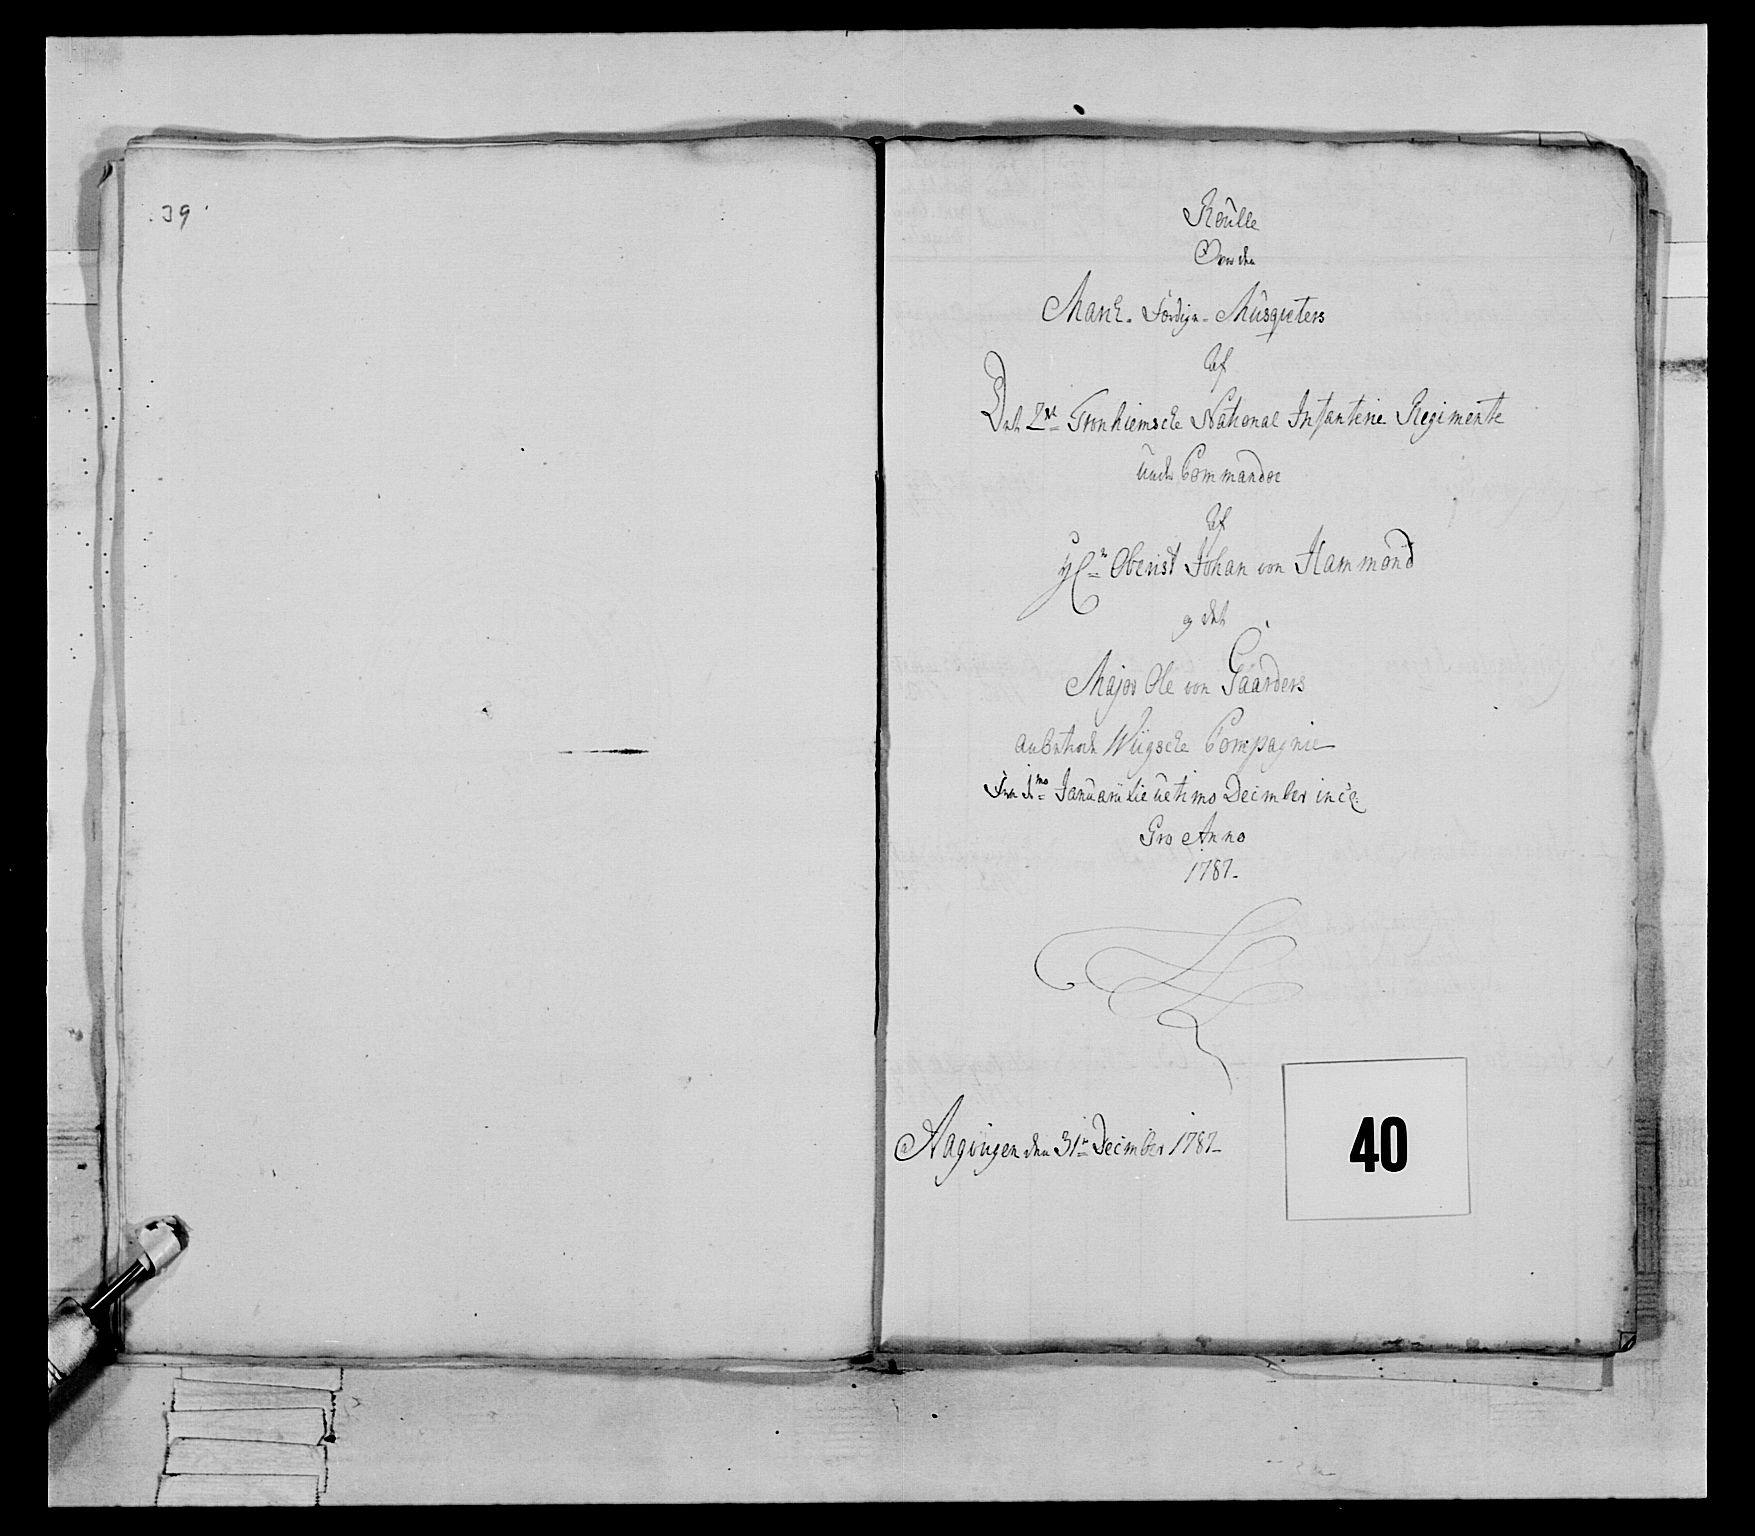 39
Roulle
Over de
Manq. Færdige Musqueters
af
Det 2de Tronhiemske National Infanterie Regimente
under Commandoe
af
Hr Oberist Johan von Hammond
og det
Major Ole von Gaarders
anbetroede Wiigske Compagnie
Fra 1mo Januarii til ultimo December incl:
Pro Anno
1787
den 31te December 1787
40